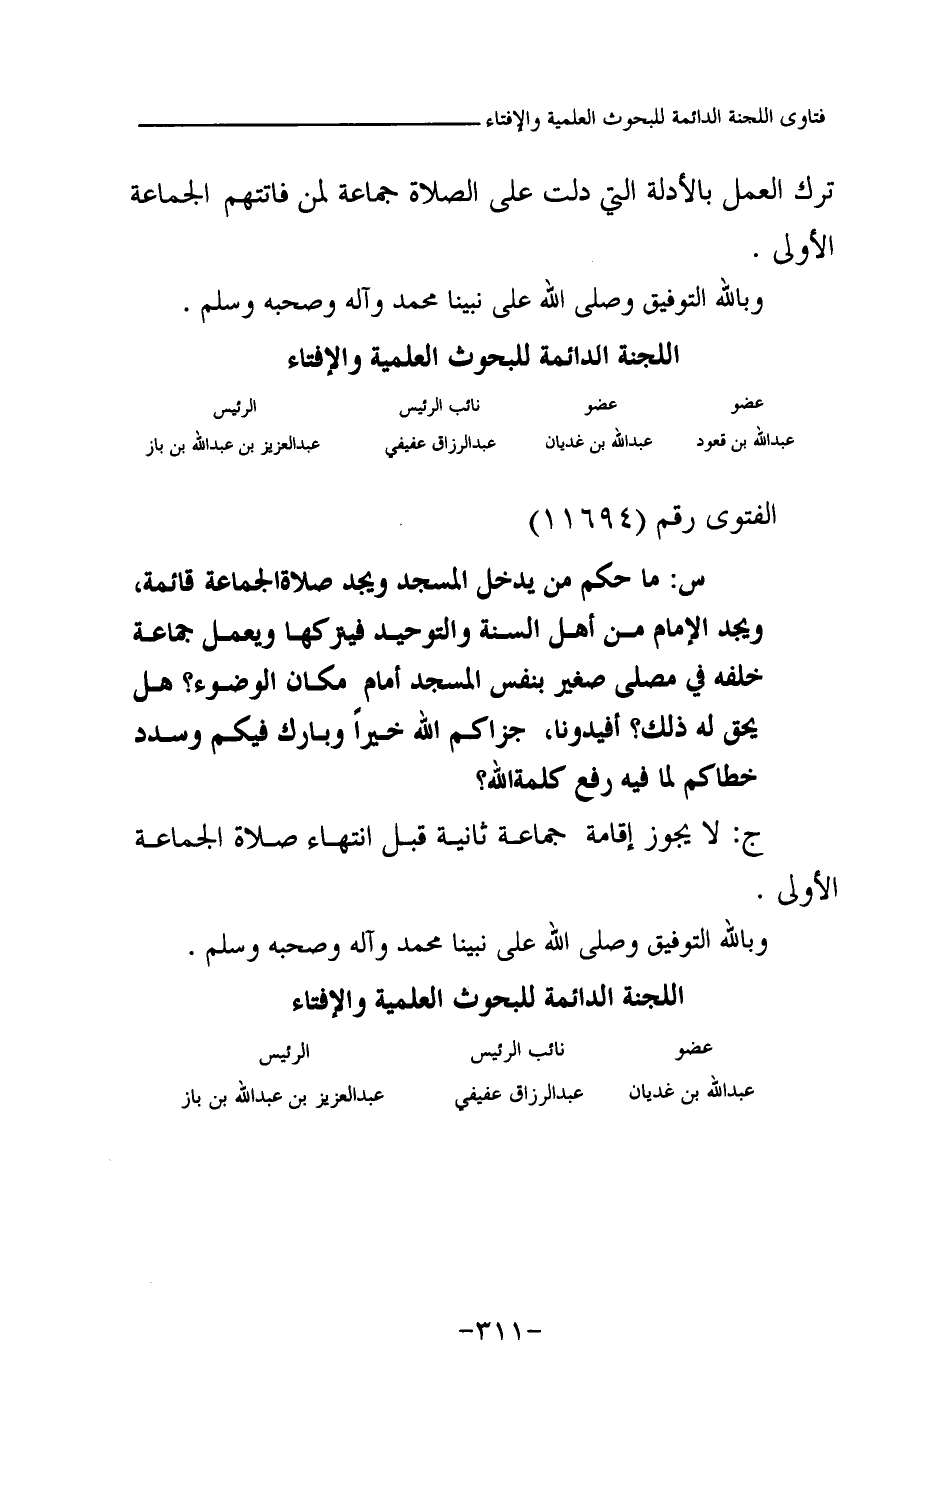 فتاوى اللجنة الدائمة للبحوث العلمية والإفتاء
ترك العمل بالأدلة التي دلت على الصلاة جماعة لمن فاتتهم الجماعة
الأولى .
وبالله التوفيق وصلى الله على نبينا محمد وآله وصحبه وسلم .
اللجنة الدائمة للبحوث العلمية والإفتاء
عضو عضو نائب الرئيس الرئيس
عبدالله بن قعود عبدالله بن غديان عبدالرزاق عفيفي عبدالعزيز بن عبدالله بن باز
الفتوى رقم (١١٦٩٤)
س: ما حكم من يدخل المسجد ويجد صلاةالجماعة قائمة،
ويجد الإمام مـن أهـل السـنة والتوحيـد فيتركهـا ويعمـل جماعـة
خلفه في مصلى صغير بنفس المسجد أمام مكـان الوضـوء؟ هـل
يحق له ذلك؟ أفيدونا، جزاكـم الله خـيراً وبـارك فيكـم وسـدد
خطاكم لما فيه رفع كلمةالله؟
ج: لا يجوز إقامة جماعـة ثانيـة قبـل انتهـاء صـلاة الجماعـة
الأولى .
وبالله التوفيق وصلى الله على نبينا محمد وآله وصحبه وسلم .
اللجنة الدائمة للبحوث العلمية والإفتاء
عضو نائب الرئيس الرئيس
عبدالله بن غديان عبدالرزاق عفيفي عبدالعزيز بن عبدالله بن باز
-٣١١-